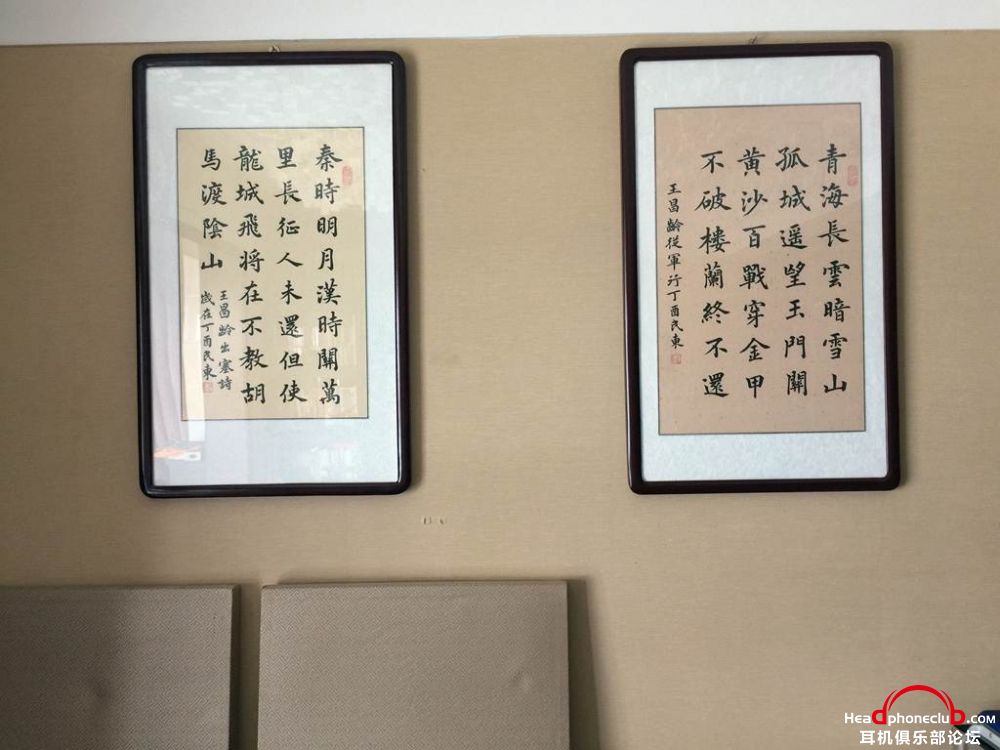 秦時明月漢時關萬
里長征人未還但使
龍城飛將在不教胡
馬渡陰山
王昌齡出塞詩
歲在丁酉民東
青海長雲暗雪山
孤城遥望玉門關
黄沙百戰穿金甲
不破樓蘭終不還
王昌齡從軍行丁酉民東
Headphoneclub.com
耳机俱乐部论坛